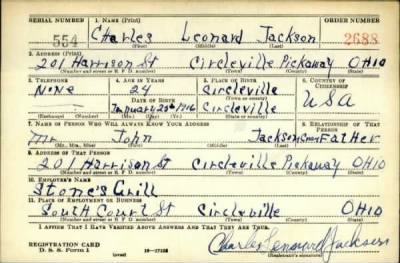 SERIAL NUMBER 1. NAME (Print) ORDER NUMBER
554 Charles Leonard Jackson 2688
(First) (Middle) (Last)
2. ADDRESS (Print)
201 Harrison St Circleville Pickaway OHIO
(Number and street or R. F. D. number) (Town) (County) (State)
3. TELEPHONE 4. AGE IN YEARS 5. PLACE OF BIRTH 6. COUNTRY OF CITIZENSHIP
NoNe 24 Circleville
DATE OF BIRTH (Town or county)
January 20th 1916 Circleville USA
(Exchange) (Number) (Mo.) (Day) (Yr.) (State or country)
7. NAME OF PERSON WHO WILL ALWAYS KNOW YOUR ADDRESS 8. RELATIONSHIP OF THAT PERSON
Mr John Jackson FatHer
(Mr., Mrs., Miss) (First) (Middle) (Last)
9. ADDRESS OF THAT PERSON
201 Harrison St Circleville Pickaway OHIO
(Number and street or R. F. D. number) (Town) (County) (State)
10. EMPLOYER'S NAME
Stone's Grill
11. PLACE OF EMPLOYMENT OR BUSINESS
South Court St Circleville OHIO
(Number and street or R. F. D. number) (Town) (County) (State)
I AFFIRM THAT I HAVE VERIFIED ABOVE ANSWERS AND THAT THEY ARE TRUE.
REGISTRATION CARD
D. S. S. Form 1 (over) 16-17105 Charles Leonard Jackson
(Registrant's signature)